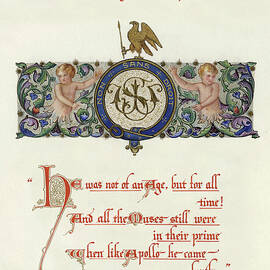 NON SANS DROIT
"He was not of an Age, but for all
time!
And all the Muses still were
in their prime
When like Apollo he came